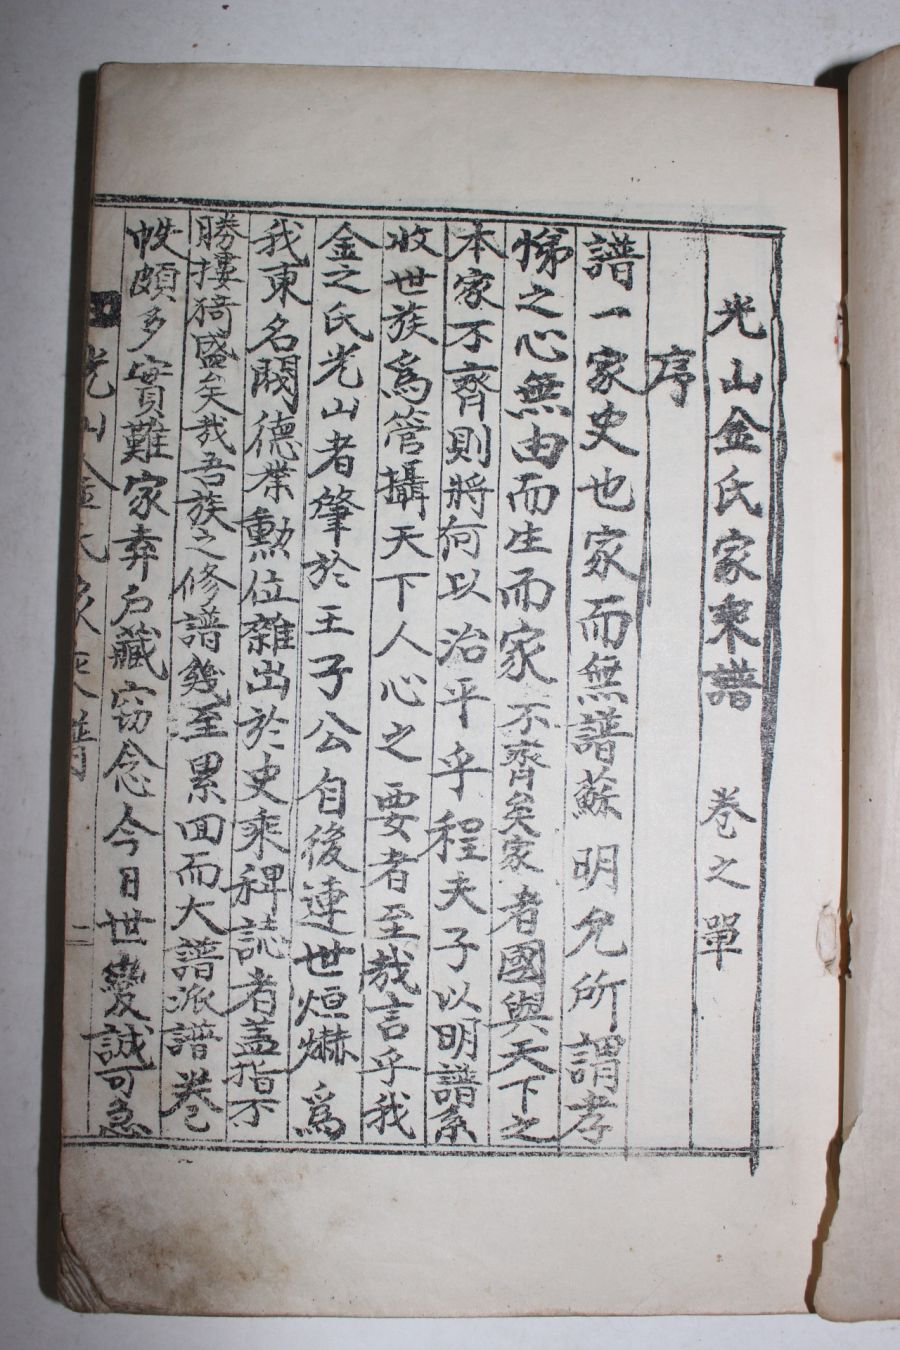 光山金氏家乘譜 卷之單
序
譜一家史也家而無譜蘇明允所謂孝
悌之心無由而生而家不齊矣家者國與天下之
本家不齊則將何以治平乎程夫子以明譜系
收世族爲管攝天下人心之要者至哉言乎我
金之氏光山者肇於王子公自後連世烜爀爲
我東名閥德業勳位雜出於史乘稗誌者盖指不
勝摟猗盛矣哉吾族之修譜幾至累回而大譜派譜卷
帙頗多實難家弆戶藏窃念今日世變誠可急
光山金氏家乘譜